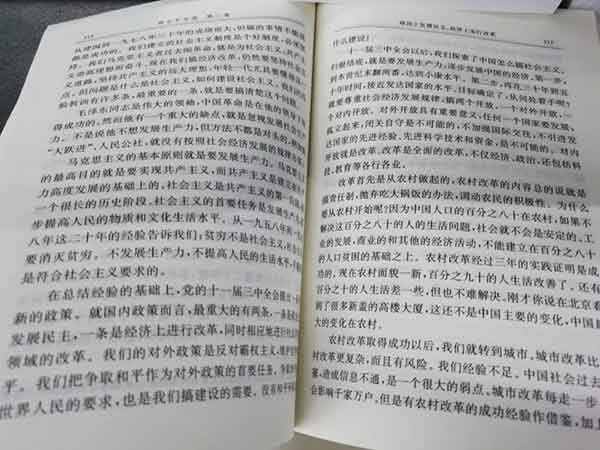 116
邓小平文选 第三卷
从建国到一九七八年三十年的成绩很大,但做的事情不能说
都是成功的。我们建立的社会主义制度是个好制度,必须坚
持。我们马克思主义者过去闹革命,就是为社会主义、共产主
义崇高理想而奋斗。现在我们搞经济改革,仍然要坚持社会主
义道路,坚持共产主义的远大理想,年轻一代尤其要懂得这一
点。但问题是什么是社会主义,如何建设社会主义。我们的经
验教训有许多条,最重要的一条,就是要搞清楚这个问题。
毛泽东同志是伟大的领袖,中国革命是在他的领导下取
得成功的。然而他有一个重大的缺点,就是忽视发展社会生产
力。不是说他不想发展生产力,但方法不都是对头的,例如搞
“大跃进”、人民公社,就没有按照社会经济发展的规律办事。
马克思主义的基本原则就是要发展生产力。马克思主义
的最高目的就是要实现共产主义,而共产主义是建立在生产
力高度发展的基础上的。社会主义是共产主义的第一阶段,是
一个很长的历史阶段。社会主义的首要任务是发展生产力,逐
步提高人民的物质和文化生活水平。从一九五八年到一九七
八年这二十年的经验告诉我们:贫穷不是社会主义,社会主义
要消灭贫穷。不发展生产力,不提高人民的生活水平,不能说
是符合社会主义要求的。
在总结经验的基础上,党的十一届三中全会提出一系列
新的政策。就国内政策而言,最重大的有两条,一条是政治上
发展民主,一条是经济上进行改革,同时相应地进行社会其他
领域的改革。我们的对外政策是反对霸权主义,维护世界和
平。我们把争取和平作为对外政策的首要任务。争取和平是
世界人民的要求,也是我们搞建设的需要。没有和平环境,搞
政治上发展民主,经济上实行改革
117
什么建设!
十一届三中全会以后,我们探索了中国怎么搞社会主义。
归根结底,就是要发展生产力,逐步发展中国的经济。第一步,
到本世纪末翻两番,达到小康水平。第二步,再花三十年到五
十年时间,接近发达国家的水平。目标确定了,从何处着手呢?
就要尊重社会经济发展规律,搞两个开放,一个对外开放,一
个对内开放。对外开放具有重要意义,任何一个国家要发展,
孤立起来,闭关自守是不可能的,不加强国际交往,不引进发
达国家的先进经验、先进科学技术和资金,是不可能的。对内
开放就是改革。改革是全面的改革,不仅经济、政治,还包括科
技、教育等各行各业。
改革首先是从农村做起的,农村改革的内容总的说就是
搞责任制,抛弃吃大锅饭的办法,调动农民的积极性。为什么
要从农村开始呢?因为中国人口的百分之八十在农村,如果不
解决这百分之八十的人的生活问题,社会就不会是安定的。工
业的发展,商业的和其他的经济活动,不能建立在百分之八十
的人口贫困的基础之上。农村改革经过三年的实践证明是成
功的。现在农村面貌一新,百分之九十的人生活改善了。还有
百分之十的人生活差一些,但也不难解决。刚才你说在北京看
到了很多新盖的高楼大厦,这还不是中国主要的变化,中国最
大的变化在农村。
农村改革取得成功以后,我们就转到城市。城市改革比农
村改革更复杂,而且有风险。我们经验不足,中国社会过去
塞,造成信息不通,是一个很大的弱点。城市改革每走一步,都
会影响千家万户。但是有农村改革的成功经验作借鉴,加上